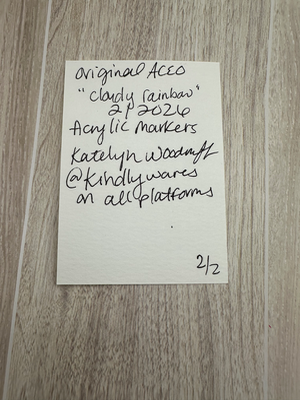 original ACEO
"cloudy rainbow"
2/2026
Acrylic markers
Katelyn Woodruff
@Kindlywares
on all platforms
2/2